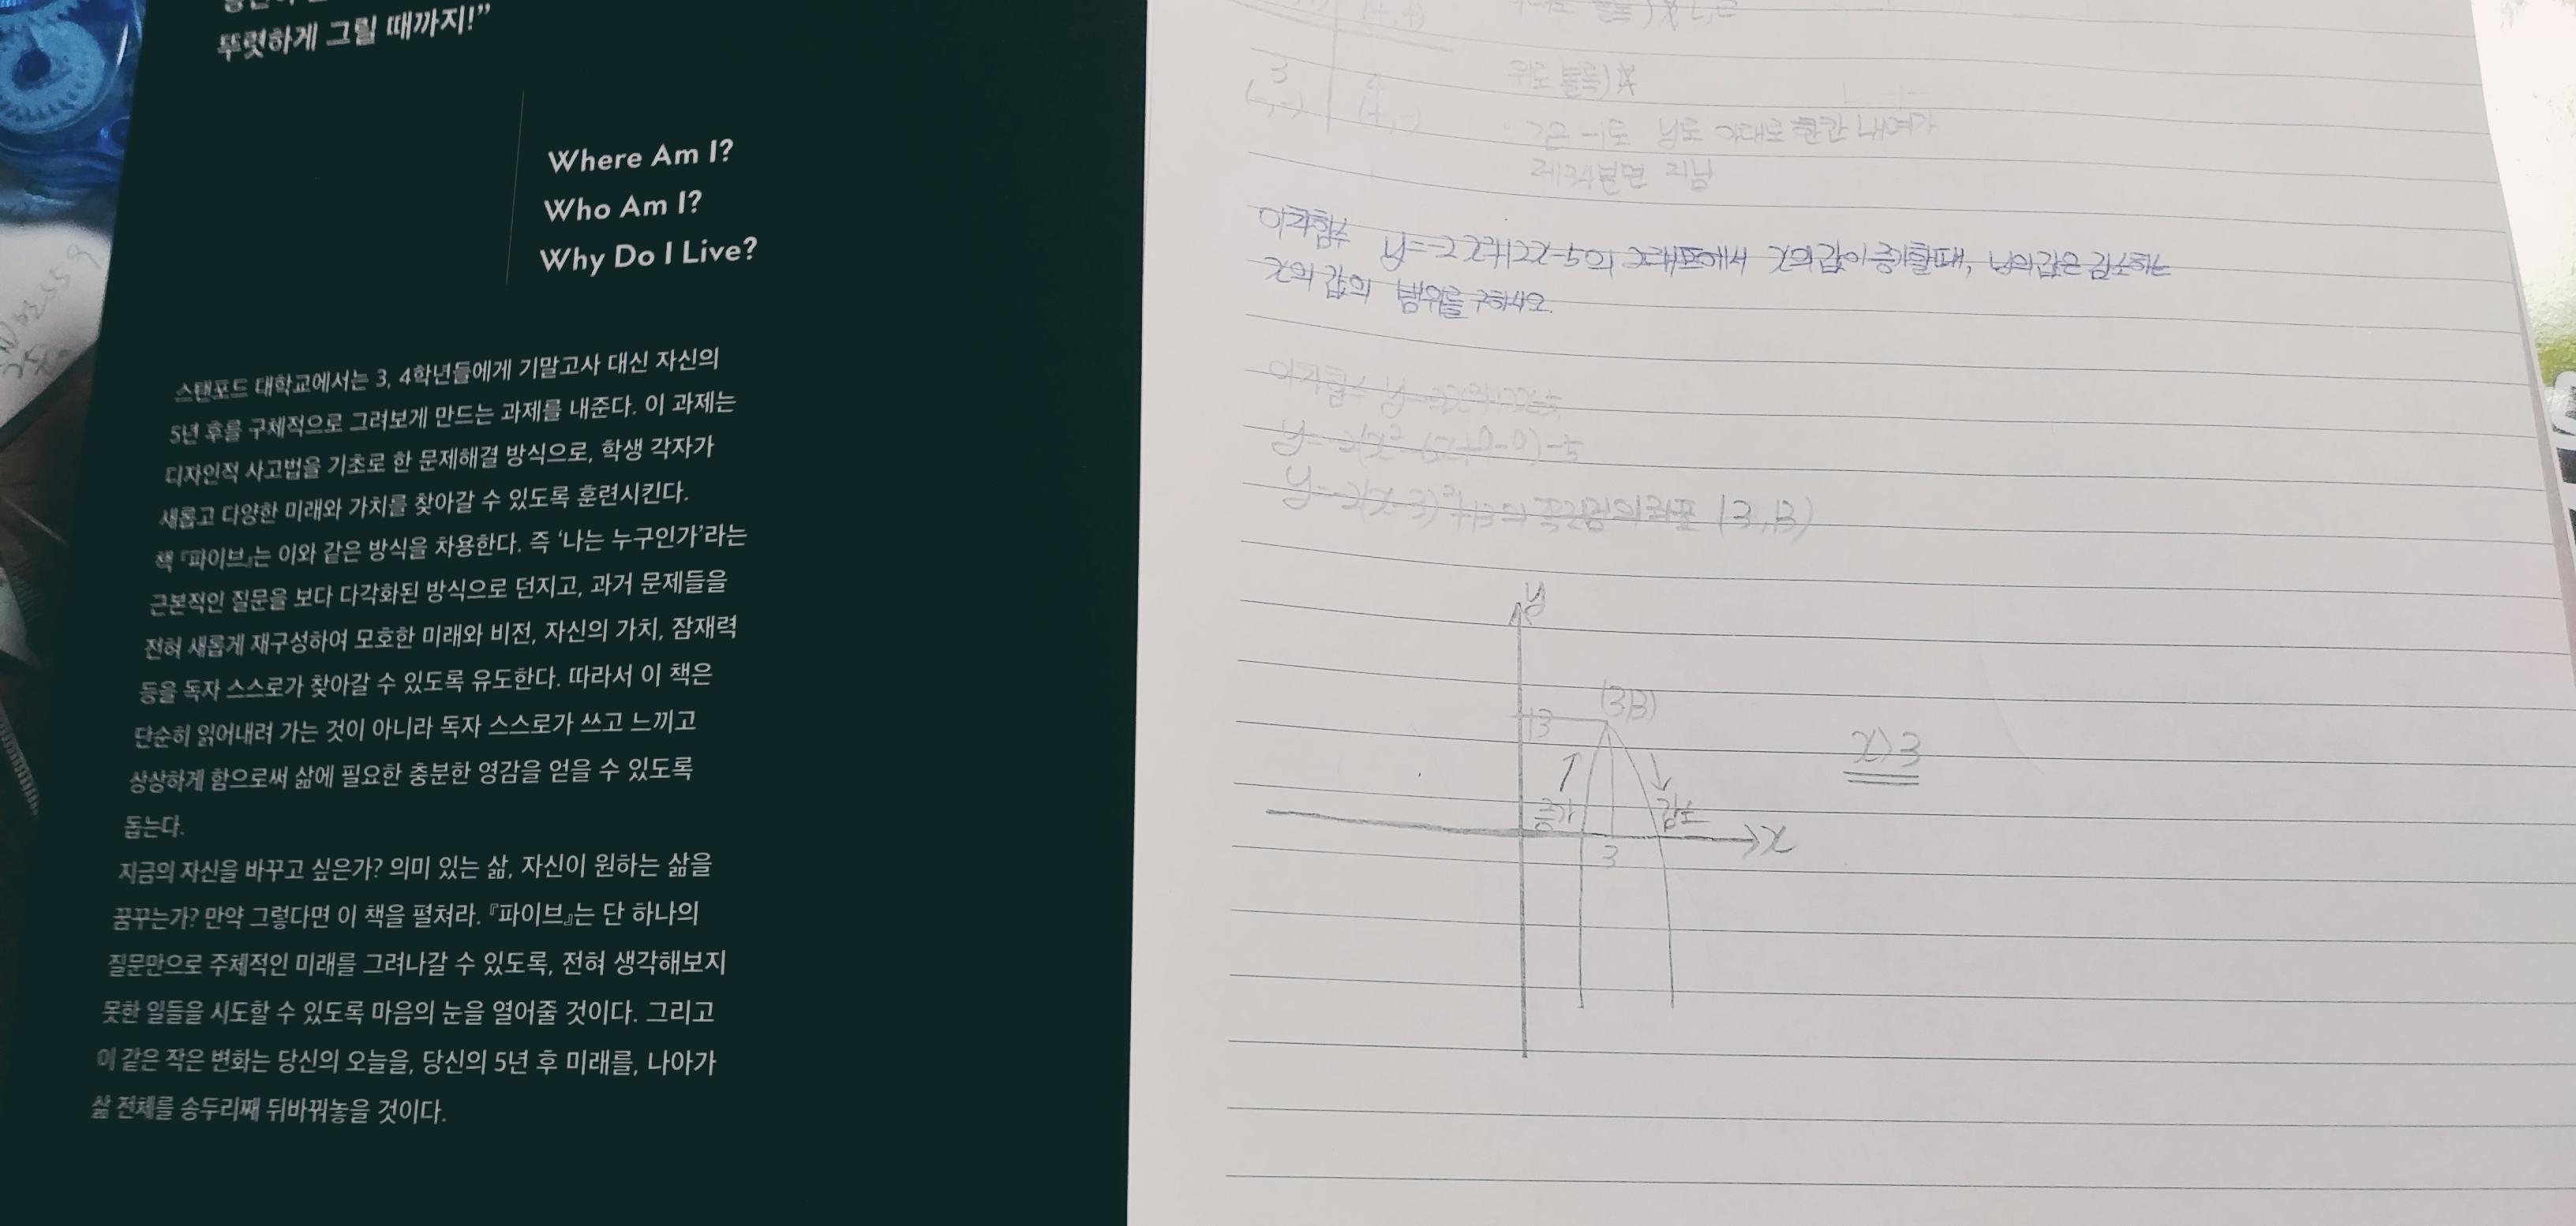 뚜렷하게 그릴 때까지!”
Where Am I?
Who Am I?
Why Do I Live?
스탠포드 대학교에서는 3, 4학년들에게 기말고사 대신 자신의
5년 후를 구체적으로 그려보게 만드는 과제를 내준다. 이 과제는
디자인적 사고법을 기초로 한 문제해결 방식으로, 학생 각자가
새롭고 다양한 미래와 가치를 찾아갈 수 있도록 훈련시킨다.
책 『파이브』는 이와 같은 방식을 차용한다. 즉 ‘나는 누구인가’라는
근본적인 질문을 보다 다각화된 방식으로 던지고, 과거 문제들을
전혀 새롭게 재구성하여 모호한 미래와 비전, 자신의 가치, 잠재력
등을 독자 스스로가 찾아갈 수 있도록 유도한다. 따라서 이 책은
단순히 읽어내려 가는 것이 아니라 독자 스스로가 쓰고 느끼고
상상하게 함으로써 삶에 필요한 충분한 영감을 얻을 수 있도록
돕는다.
지금의 자신을 바꾸고 싶은가? 의미 있는 삶, 자신이 원하는 삶을
꿈꾸는가? 만약 그렇다면 이 책을 펼쳐라. 『파이브』는 단 하나의
질문만으로 주체적인 미래를 그려나갈 수 있도록, 전혀 생각해보지
못한 일들을 시도할 수 있도록 마음의 눈을 열어줄 것이다. 그리고
이 같은 작은 변화는 당신의 오늘을, 당신의 5년 후 미래를, 나아가
삶 전체를 송두리째 뒤바꿔놓을 것이다.
3 4
(-,-) (+,-)
위로 볼록)
이차함수 y=-2x²+12x-5의 그래프에서 x의 값이 증가할 때, y의 값은 감소하는
x의 값의 범위를 구하시오.
이차함수 y=-2x²+12x-5
y=-2(x²-6x+9-9)-5
y=-2(x-3)²+13의 꼭짓점의 좌표 (3,13)
y
(3,13)
13
증가 감소
x>3
3
x